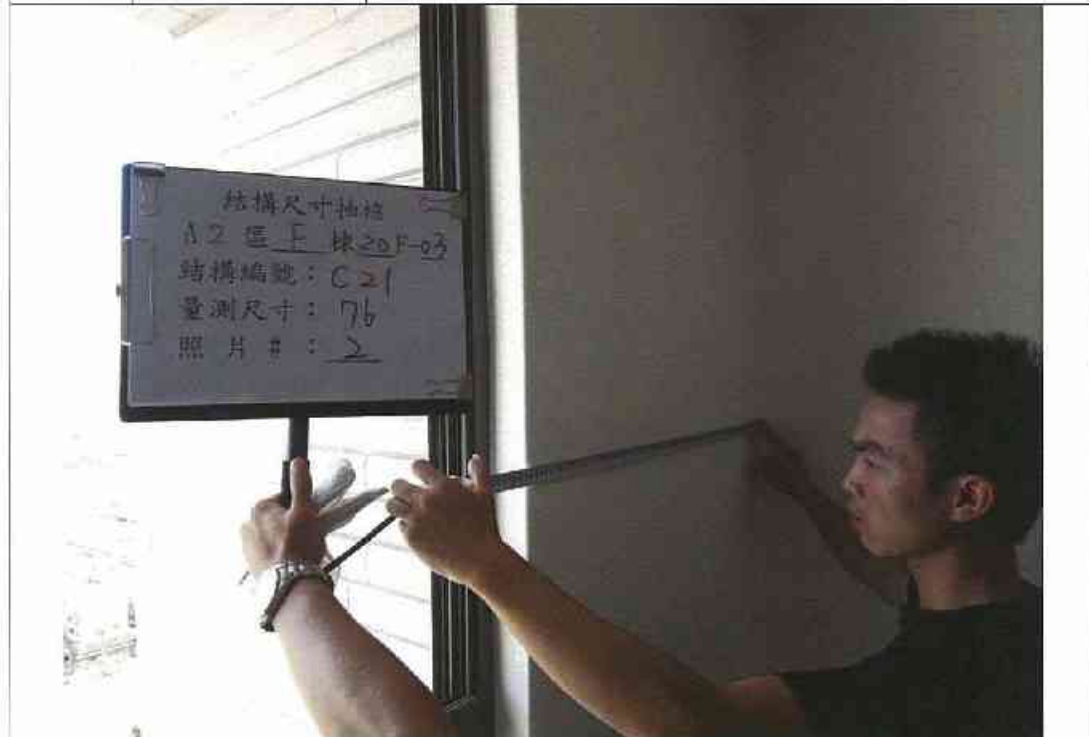 結構尺寸抽檢
A2 區 F 棟20F-03
結構編號：C21
量測尺寸：76
照片#：2